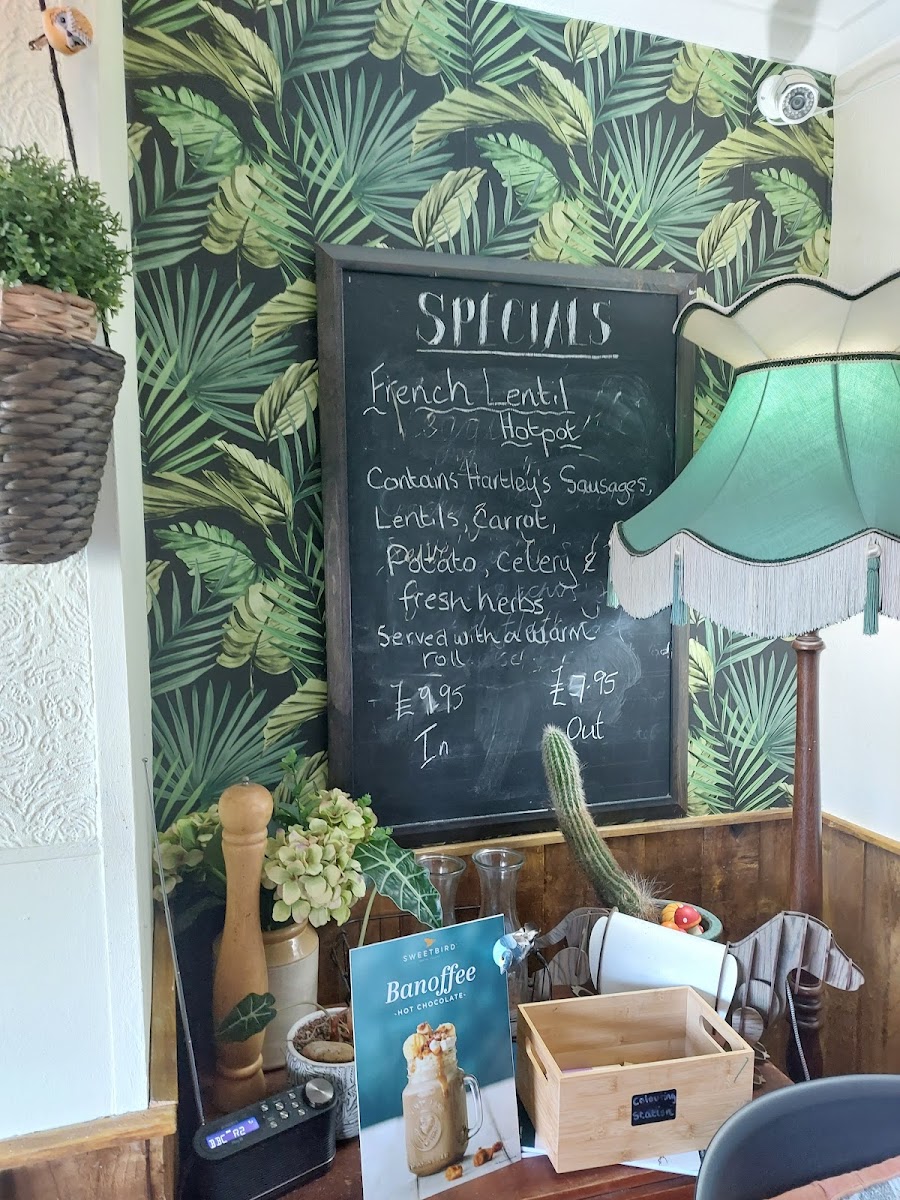 SPECIALS
French Lentil
Hotpot
Contains Hartley's Sausages,
Lentils, Carrot,
Potato, Celery &
fresh herbs
Served with a warm
roll
£9.95 £7.95
In Out
SWEETBIRD
Banoffee
-HOT CHOCOLATE-
Colouring
Station
BBC R2